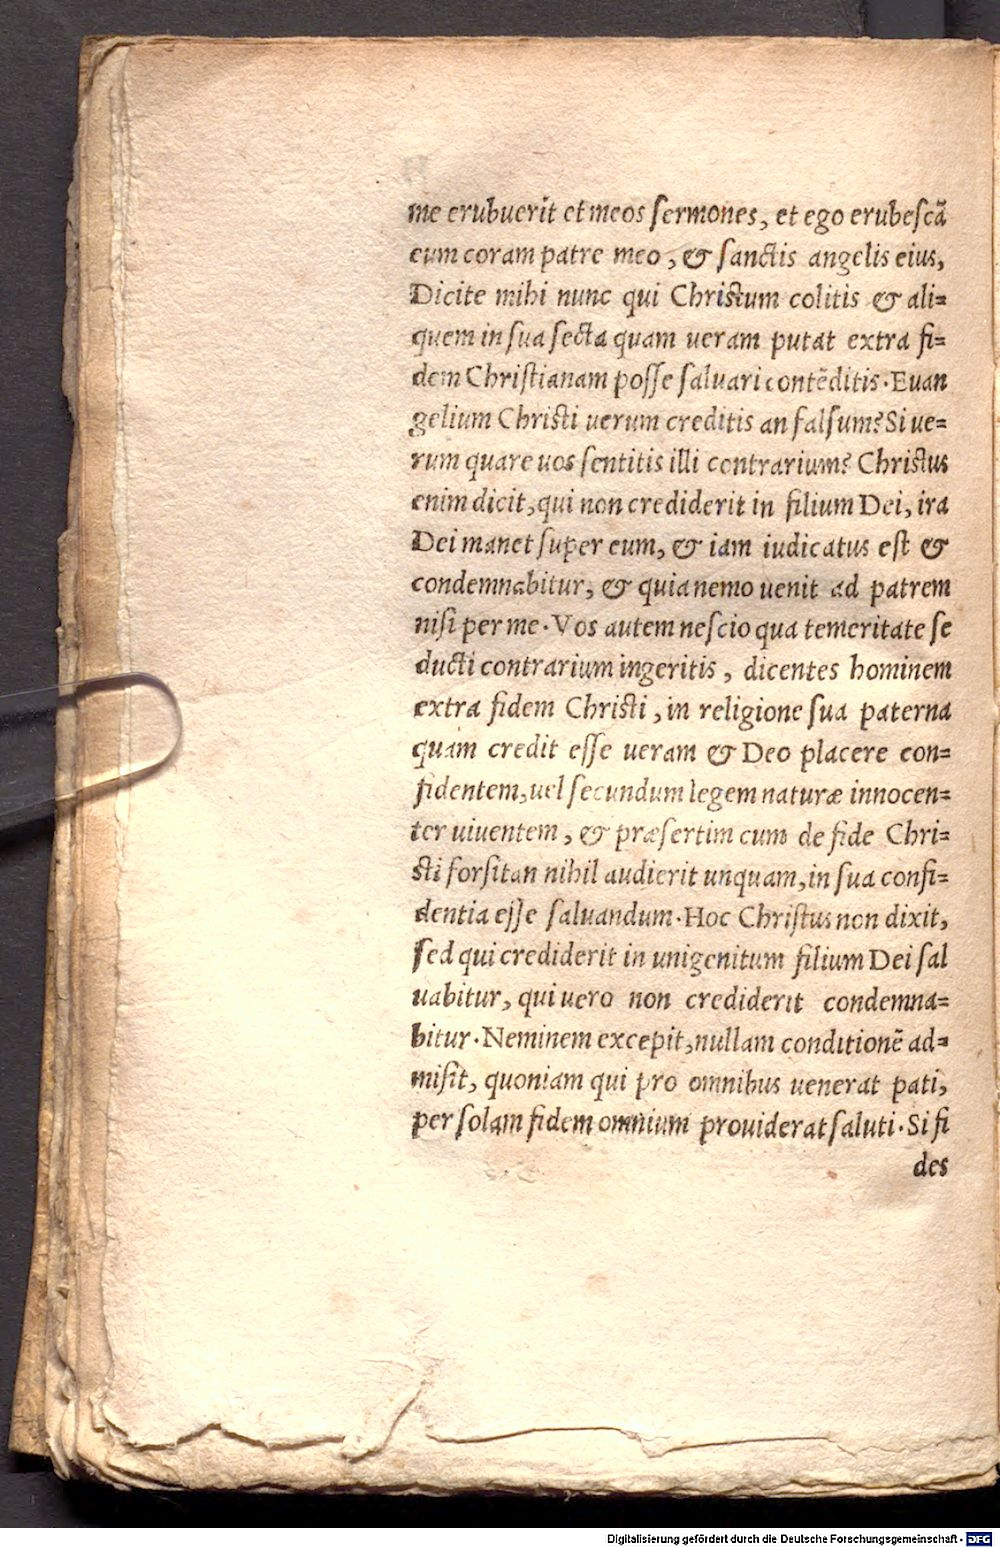 me erubuerit et meos sermones, et ego erubescā
eum coram patre meo, & sanctis angelis eius,
Dicite mihi nunc qui Christum colitis & ali=
quem in sua secta quam ueram putat extra fi=
dem Christianam posse saluari contēditis. Euan
gelium Christi uerum creditis an falsum? Si ue=
rum quare uos sentitis illi contrarium? Christus
enim dicit, qui non crediderit in filium Dei, ira
Dei manet super eum, & iam iudicatus est &
condemnabitur, & quia nemo uenit ad patrem
nisi per me. Vos autem nescio qua temeritate se
ducti contrarium ingeritis, dicentes hominem
extra fidem Christi, in religione sua paterna
quam credit esse ueram & Deo placere con=
fidentem, uel secundum legem naturæ innocen=
ter uiuentem, & præsertim cum de fide Chri=
sti forsitan nihil audierit unquam, in sua confi=
dentia esse saluandum. Hoc Christus non dixit,
sed qui crediderit in unigenitum filium Dei sal
uabitur, qui uero non crediderit condemna=
bitur. Neminem excepit, nullam conditionē ad=
misit, quoniam qui pro omnibus uenerat pati,
per solam fidem omnium prouiderat saluti. Si fi
des
Digitalisierung gefördert durch die Deutsche Forschungsgemeinschaft - DFG